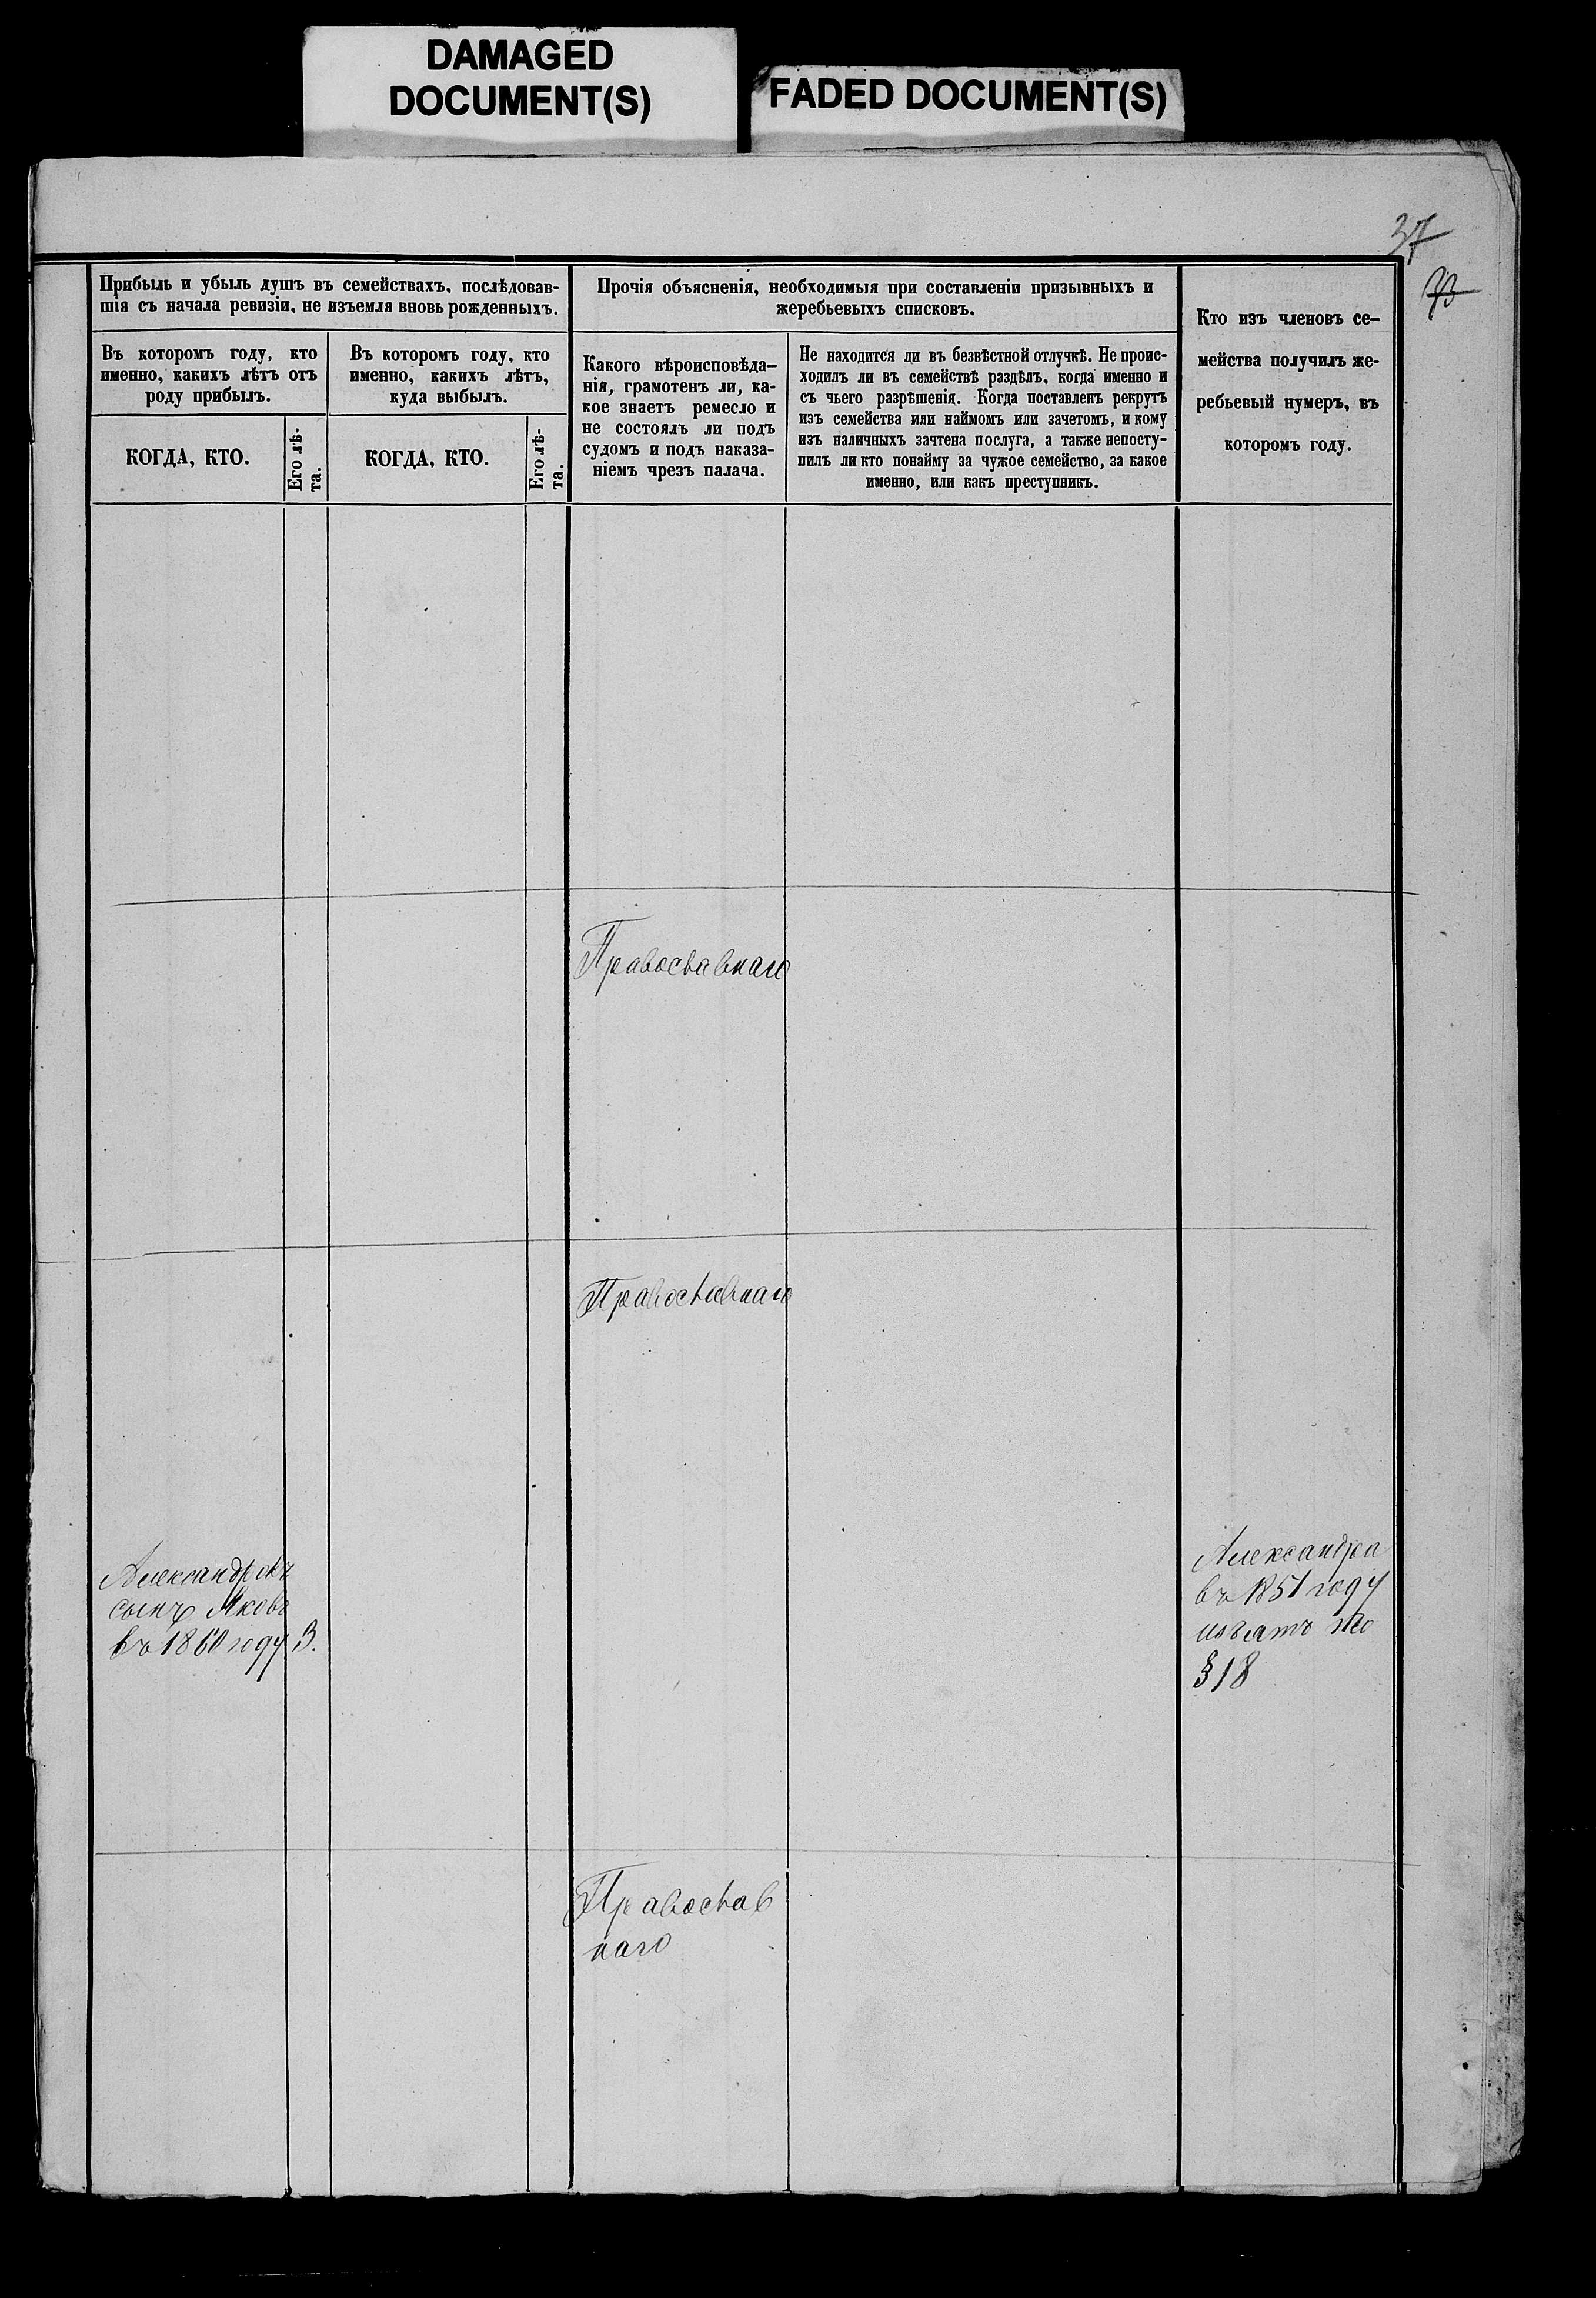 DAMAGED
DOCUMENT(S)
FADED DOCUMENT(S)
37
Прибыль и убыль душъ въ семействахъ, послѣдовав-
шія съ начала ревизіи, не изъемля вновь рожденныхъ.
Въ которомъ году, кто
именно, какихъ лѣтъ отъ
роду прибылъ.
КОГДА, КТО.
Его лѣ-
та.
Въ которомъ году, кто
именно, какихъ лѣтъ,
куда выбылъ.
КОГДА, КТО.
Его лѣ-
та.
Прочія объясненія, необходимыя при составленіи призывныхъ и
жеребьевыхъ списковъ.
Какого вѣроисповѣда-
нія, грамотенъ ли, ка-
кое знаетъ ремесло и
не состоялъ ли подъ
судомъ и подъ наказа-
ніемъ чрезъ палача.
Не находится ли въ безвѣстной отлучкѣ. Не проис-
ходилъ ли въ семействѣ раздѣлъ, когда именно и
съ чьего разрѣшенія. Когда поставленъ рекрутъ
изъ семейства или наймомъ или зачетомъ, и кому
изъ наличныхъ зачтена послуга, а также непосту-
пилъ ли кто понайму за чужое семейство, за какое
именно, или какъ преступникъ.
Кто изъ членовъ се-
мейства получилъ же-
ребьевый нумеръ, въ
которомъ году.
Православнаго
Православнаго
Александровъ
сынъ Яковъ
въ 1860 году 3.
Александра
въ 1851 году
изъятъ по
§ 18
Православ
наго